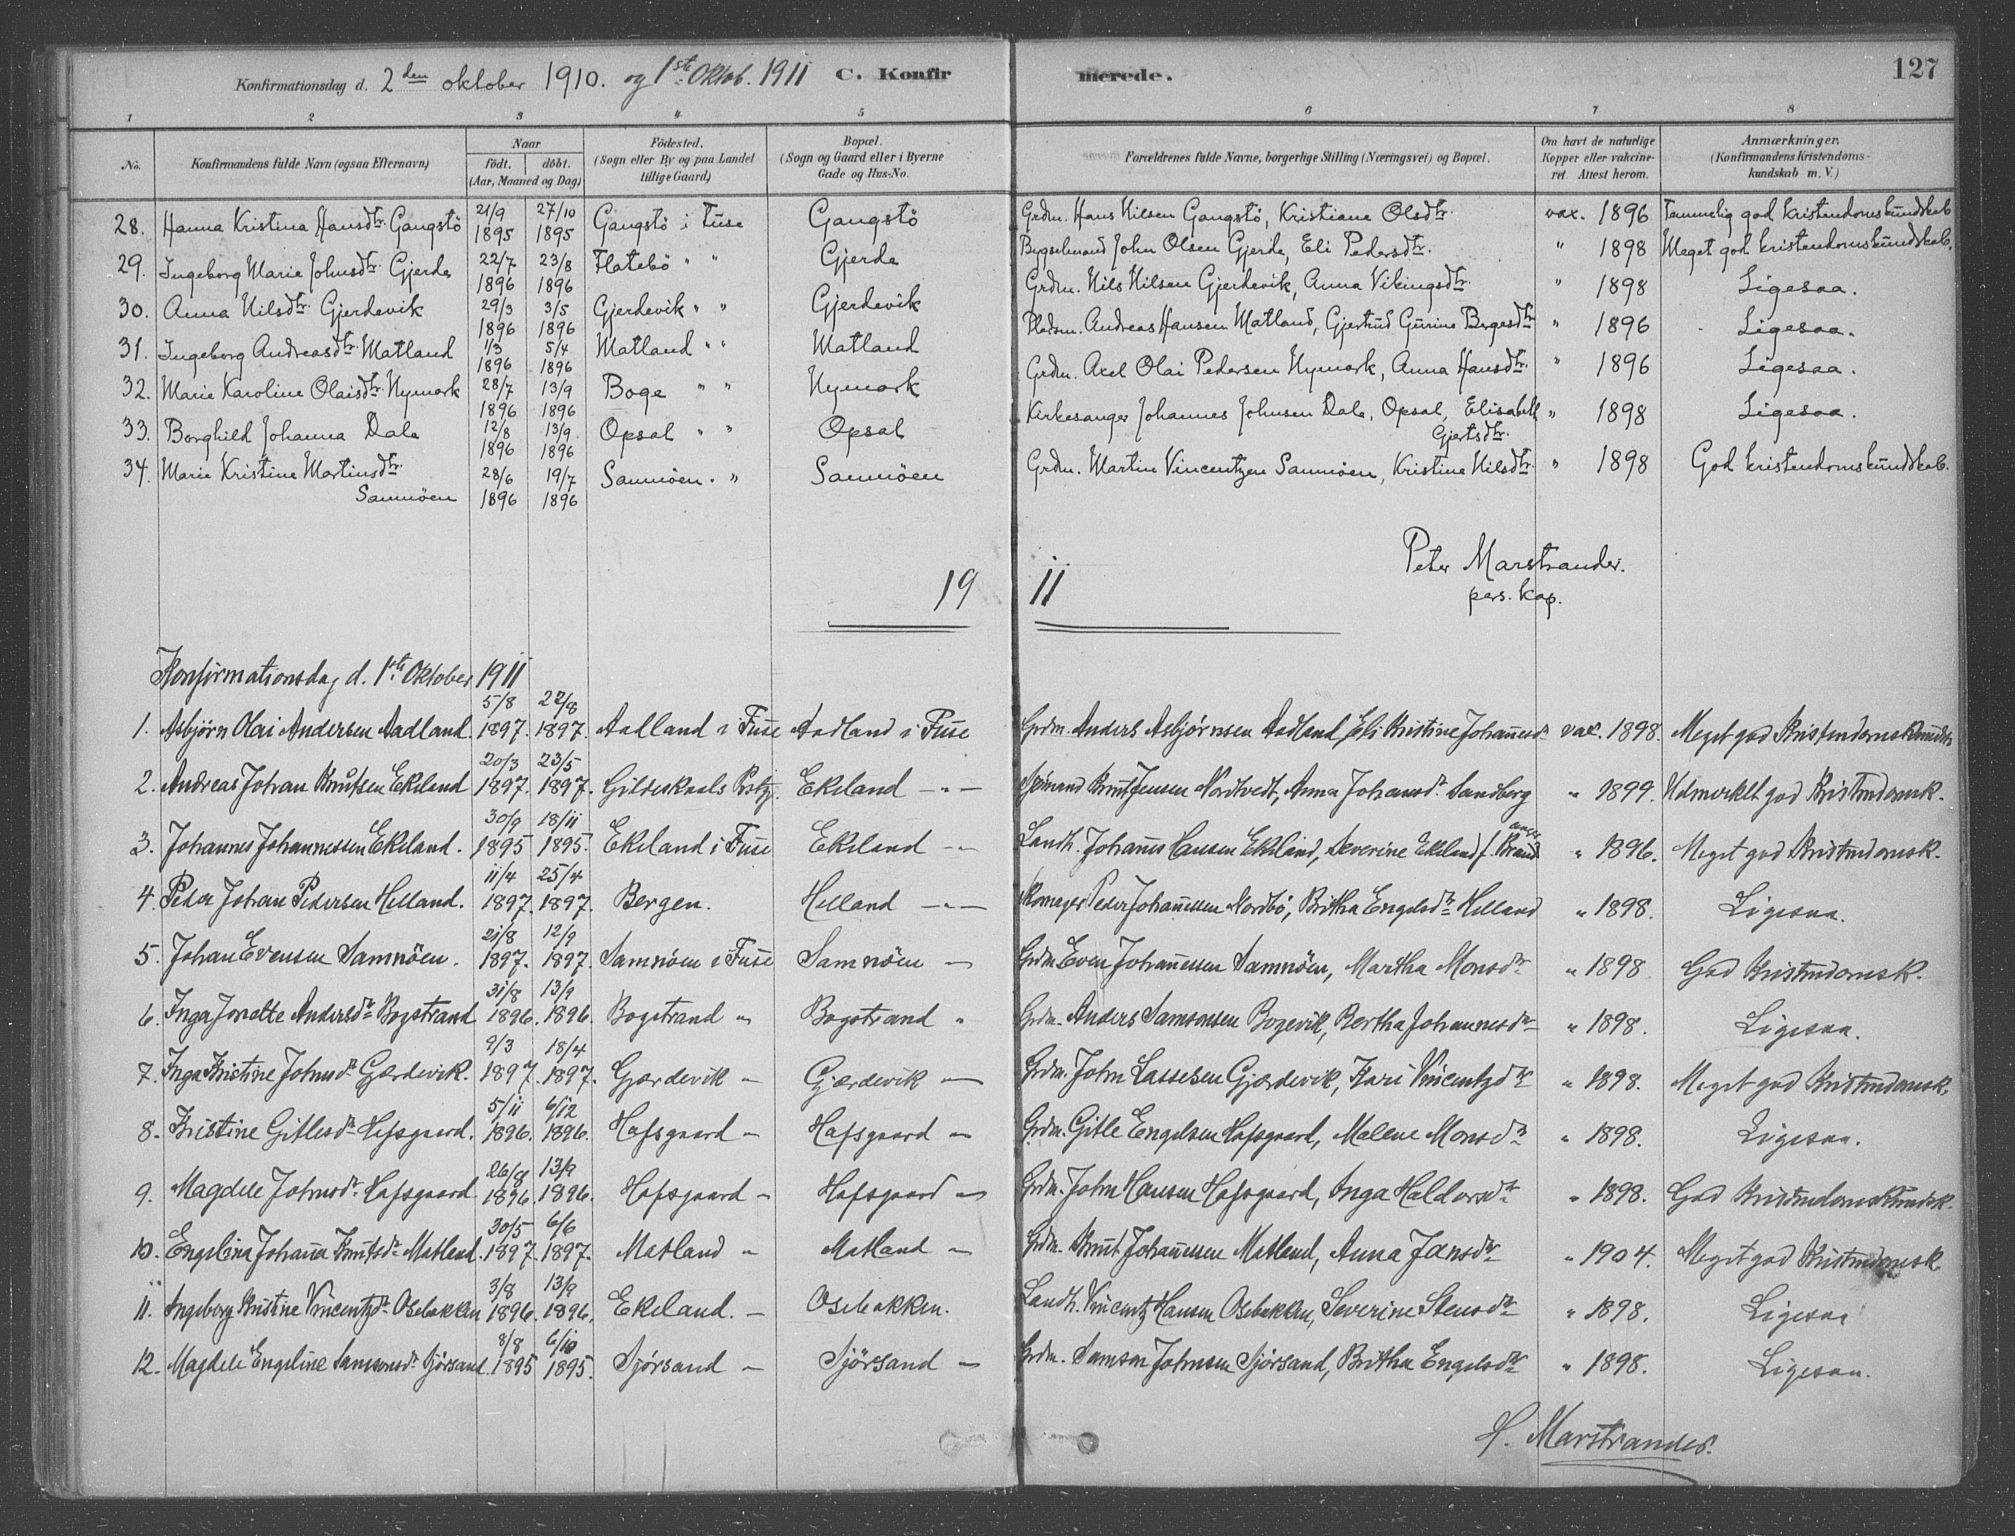 Konfirmationsdag d. 2den oktober 1910. og 1ste Oktob. 1911 C. Konfirmerede. 127
1 2 3 4 5 6 7 8
No. Konfirmandens fulde Navn (ogsaa Efternavn) Naar født, døbt. (Aar, Maaned og Dag) Fødested. (Sogn eller By og paa Landet tillige Gaard) Bopæl. (Sogn og Gaard eller i Byerne Gade og Hus-No. Forældrenes fulde Navne, borgerlige Stilling (Næringsvei) og Bopæl. Om havt de naturlige Kopper eller vakcineret. Attest herom. Anmærkninger. (Konfirmandens Kristendomskundskab m. V.)
28. Hanna Kristina Hansdtr. Gangstö 21/9 1895 27/10 1895 Gangstö i Fuse Gangstö Grdm. Hans Nilsen Gangstö, Kristiane Olsdtr. vax. 1896 Temmelig god kristendomskundskab
29. Ingeborg Marie Johnsdtr. Gjerde 22/7 1896 23/8 1896 Flatebö " " Gjerde Bygselmand John Olsen Gjerde, Eli Pedersdtr. " 1898 Meget god kristendomskundskab.
30. Anna Nilsdtr. Gjerdevik 29/3 1896 3/5 1896 Gjerdevik " " Gjerdevik Grdm. Nils Nilsen Gjerdevik, Anna Vikingsdtr. " 1898 Ligesaa.
31. Ingeborg Andreasdtr. Matland 1/3 1896 5/4 1896 Matland " " Matland Pladsm. Andreas Hansen Matland, Gjertrud Gurine Bergesdtr " 1896 Ligesaa.
32. Marie Karoline Olaisdtr. Nymark 28/7 1896 13/9 1896 Boge " " Nymark Grdm. Axel Olai Pedersen Nymark, Anna Hansdtr. " 1896 Ligesaa.
33. Borghild Johanna Dale 12/8 1896 13/9 1896 Opsal " " Opsal Kirkesanger Johannes Johnsen Dale, Opsal, Elisabeth Gjertsdtr. " 1898 Ligesaa.
34. Marie Kristine Martinsdtr. Samnöen 28/6 1896 19/7 1896 Samnöen. " Samnöen Grdm. Martin Vincentzen Samnöen, Kristine Nilsdtr. " 1898 God kristendomskundskab.
Peter Marstrander.
pers. kap.
19 11
Konfirmationsdag d. 1ste Oktober 1911
1. Asbjörn Olai Andersen Aadland. 5/8 1897. 22/8 1897. Aadland i Fuse Aadland i Fuse Grdm. Anders Asbjørnsen Aadland, Eli Kristine Johannesd. vax. 1898. Meget god Kristendomskundsk
2. Andreas Johan Knutsen Ekeland 20/3 1897. 23/5 1897. Gildeskaals Prstgj. Ekeland — " — Sjømand Knut Jensen Nordtvedt, Anna Johansdr. Sandberg " 1899. Udmerket god Kristendomsk.
3. Johannes Johannessen Ekeland. 30/9 1895 18/11 1895. Ekeland i Fuse Ekeland — " — Landh. Johannes Hansen Ekeland, Severine Ekeland f. " 1896. Meget god Kristendomsk.
4. Peder Johan Pedersen Helland. 11/4 1897. 25/4 1897. Bergen. Helland — " — Skomager Peder Johannessen Nordbö, Britha Engelsdr Helland " 1898. Ligesaa.
5. Johan Evensen Samnöen. 21/8 1897. 12/9 1897. Samnöen i Fuse Samnöen — Grdm. Even Johannessen Samnöen, Martha Monsdr " 1898 God Kristendomsk.
6. Inga Jonette Andersdr Bogstrand 31/8 1896. 13/9 1896. Bogstrand " Bogstrand " Grdm. Anders Samsonsen Bogevik, Bertha Johannesdr " 1898. Ligesaa.
7. Inga Kristine Johnsdr Gjerdevik. 9/3 1897. 18/4 1897. Gjærdevik — Gjærdevik — Grdm. John Lassesen Gjærdevik, Kari Vincentzdr " 1898. Meget god Kristendomsk.
8. Kristine Gitlesdr Hafsgaard. 5/11 1896. 6/12 1896. Hafsgaard — Hafsgaard — Grdm. Gitle Engelsen Hafsgaard, Malene Monsdr " 1898. Ligesaa.
9. Magdele Johnsdr Hafsgaard 26/8 1896. 13/9 1896. Hafsgaard — Hafsgaard — Grdm. John Hansen Hafsgaard, Inga Haldorsdr " 1898. God Kristendomskundsk.
10. Engelina Johanna Knutsdr Matland. 30/5 1897. 6/6 1897. Matland — Matland — Grdm. Knut Johannessen Matland, Anna Jensdr " 1904. Meget god Kristendomsk
11. Ingeborg Kristine Vincentzdr Osebakken 3/8 1896. 13/9 1896. Ekeland. — Osebakken. Landh. Vincentz Hansen Osebakken, Severine Stensdr " 1898. Ligesaa
12. Magdele Engeline Samsonsdr Sjörsand. 8/8 1895 6/10 1895. Sjörsand — Sjörsand — Grdm. Samson Johnsen Sjörsand, Britha Engelsdr " 1898. Ligesaa.
H. Marstrander.